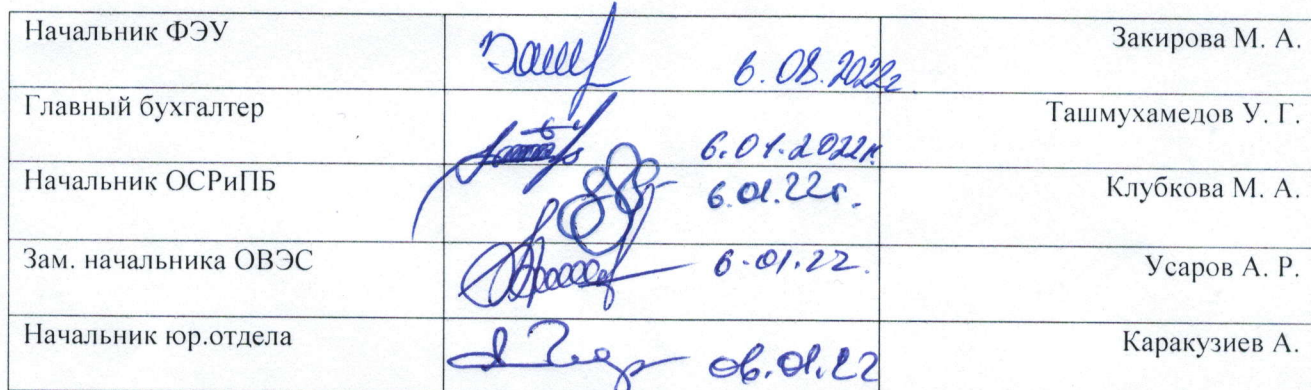 Начальник ФЭУ 6.01.2022г Закирова М. А.
Главный бухгалтер 6.01.2022г Ташмухамедов У. Г.
Начальник ОСРиПБ 6.01.22г. Клубкова М. А.
Зам. начальника ОВЭС 6.01.22. Усаров А. Р.
Начальник юр.отдела 06.01.22 Каракузиев А.